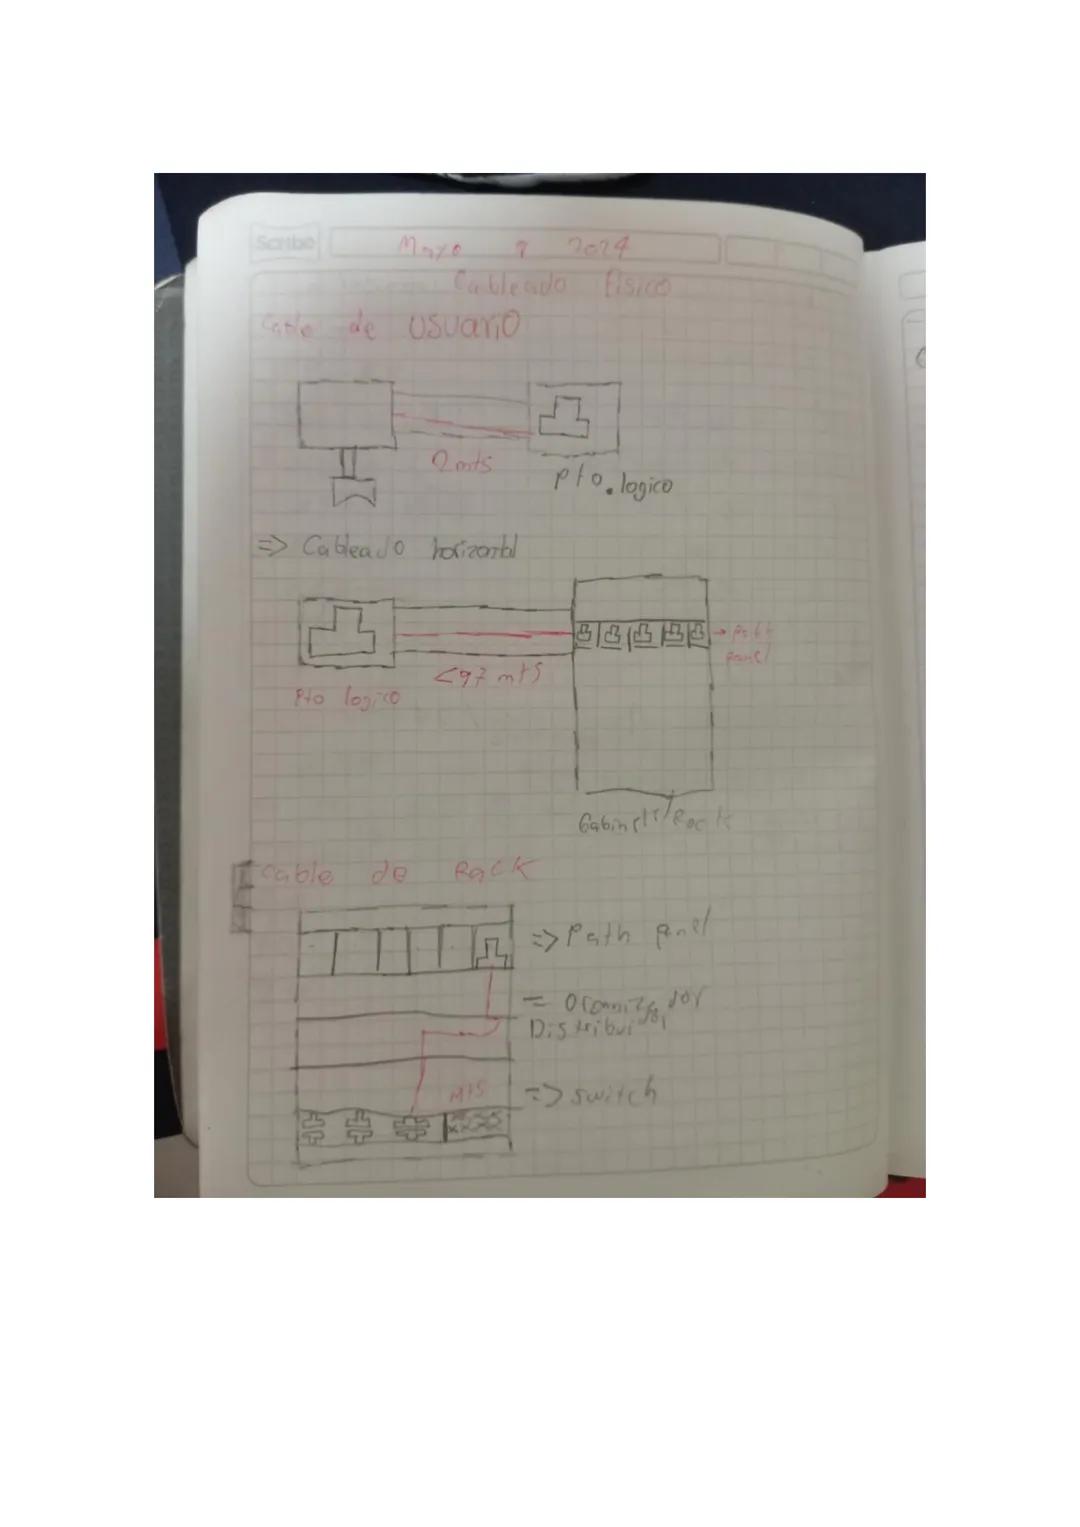 Scribe
Mayo 9 2024
Cableado físico
Cable de usuario
2 mts
pto. logico
=> Cableado horizontal
→ path
panel
<97 mts
Pto logico
Gabinete/Rack
Cable de Rack
=> Path panel
= Organizador
Distribuidor
mts
=> switch